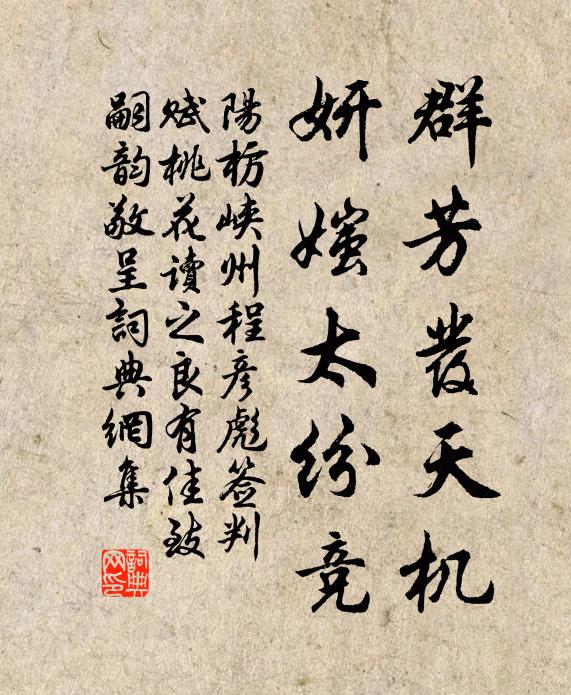 群芳發天机
妍媸太纷竞
陽枋峽州程彦彪签判
赋桃花讀之良有佳致
嗣韵敬呈詞典網集
詞典
网印